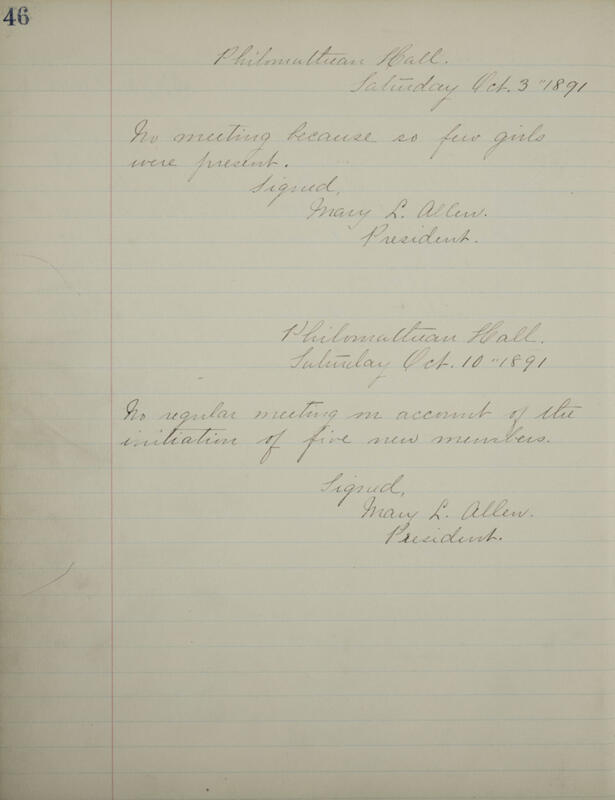 46
Philomathean Hall.
Saturday Oct. 3 " 1891
No meeting because so few girls
were present.
Signed,
Mary L. Allen.
President.
Philomathean Hall.
Saturday Oct. 10 " 1891
No regular meeting on account of the
initiation of five new members.
Signed,
Mary L. Allen.
President.